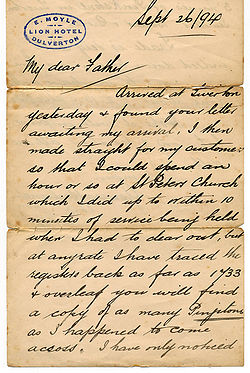 E. MOYLE
LION HOTEL
DULVERTON
Sept 26/94
My dear Father
Arrived at Tiverton
yesterday & found your letter
awaiting my arrival, I then
made straight for my customer
so that I could spend an
hour or so at St Peters Church
which I did up to within 10
minutes of service being held
when I had to clear out, but
at any rate I have traced the
registers back as far as 1733
& overleaf you will find
a copy of as many Pimptons
as I happened to come
across. I have only noticed